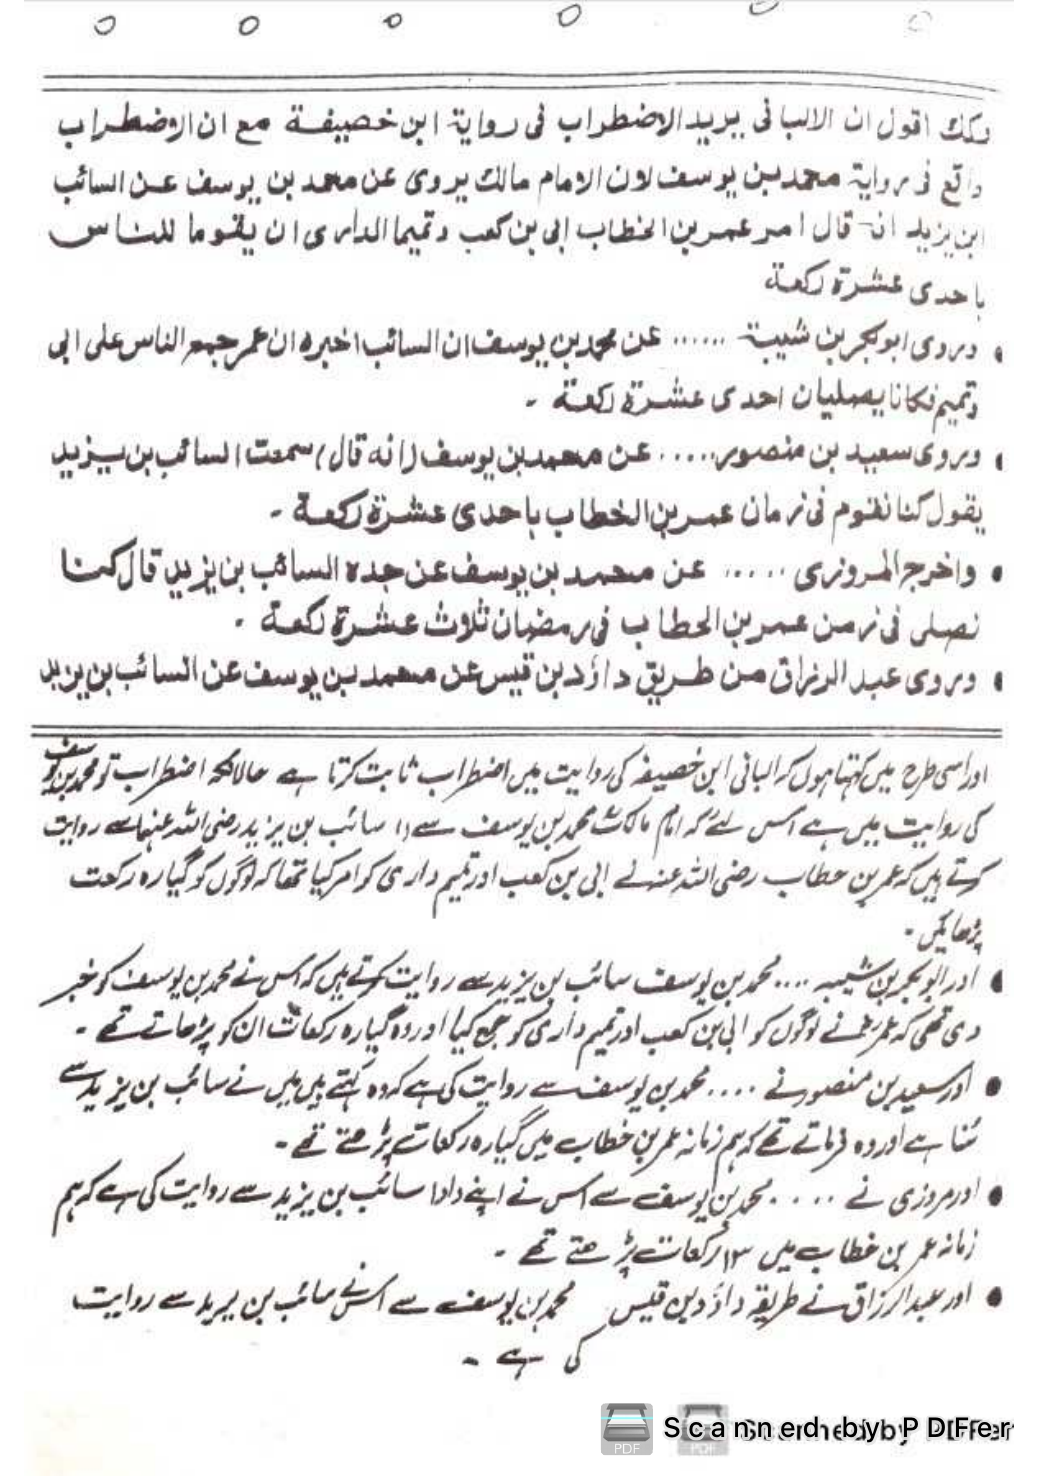 اقول ان الالبانی یرید الاضطراب فی روایة ابن خصیفة مع ان الاضطراب
واقع فی روایة محمد بن یوسف لان الامام مالك یروی عن محمد بن یوسف عن السائب
ابن یزید انہ قال امر عمر بن الخطاب ابی بن کعب وتمیما الداری ان یقوما للناس
باحدی عشرة رکعة
• وروی ابوبکر بن شیبة ...... عن محمد بن یوسف ان السائب اخبرہ ان عمر جمع الناس علی ابی
وتمیم فکانا یصلیان احدی عشرة رکعة -
• وروی سعید بن منصور ..... عن محمد بن یوسف (انه قال) سمعت السائب بن یزید
یقول کنا نقوم فی زمان عمر بن الخطاب باحدی عشرة رکعة -
• واخرج المروزی ..... عن محمد بن یوسف عن جده السائب بن یزید قال کنا
نصلی فی زمن عمر بن الخطاب فی رمضان ثلاث عشرة رکعة -
• وروی عبد الرزاق من طریق داؤد بن قیس عن محمد بن یوسف عن السائب بن یزید
اور اسی طرح میں کہتا ہوں کہ البانی ابن خصیفہ کی روایت میں اضطراب ثابت کرتا ہے حالانکہ اضطراب تو محمد بن یوسف
کی روایت میں ہے اس لئے کہ امام مالک محمد بن یوسف سے سائب بن یزید رضی اللہ عنہما سے روایت
کرتے ہیں کہ عمر بن خطاب رضی اللہ عنہ نے ابی بن کعب اور تمیم داری کو امر کیا تھا کہ لوگوں کو گیارہ رکعت
پڑھائیں -
• اور ابوبکر بن شیبہ .... محمد بن یوسف سائب بن یزید سے روایت کرتے ہیں کہ اس نے محمد بن یوسف کو خبر
دی تھی کہ عمرؓ نے لوگوں کو ابی بن کعب اور تمیم داری کو جمع کیا اور وہ گیارہ رکعات ان کو پڑھاتے تھے -
• اور سعید بن منصور نے .... محمد بن یوسف سے روایت کی ہے کہ وہ کہتے ہیں میں نے سائب بن یزید سے
سُنا ہے اور وہ فرماتے تھے کہ ہم زمانہ عمر بن خطاب میں گیارہ رکعات پڑھتے تھے -
• اور مروزی نے .... محمد بن یوسف سے اس نے اپنے دادا سائب بن یزید سے روایت کی ہے کہ ہم
زمانہ عمر بن خطاب میں ۱۳ رکعات پڑھتے تھے -
• اور عبدالرزاق نے طریقہ داؤد بن قیس محمد بن یوسف سے اس نے سائب بن یزید سے روایت
کی ہے -
Scanned by PDFer